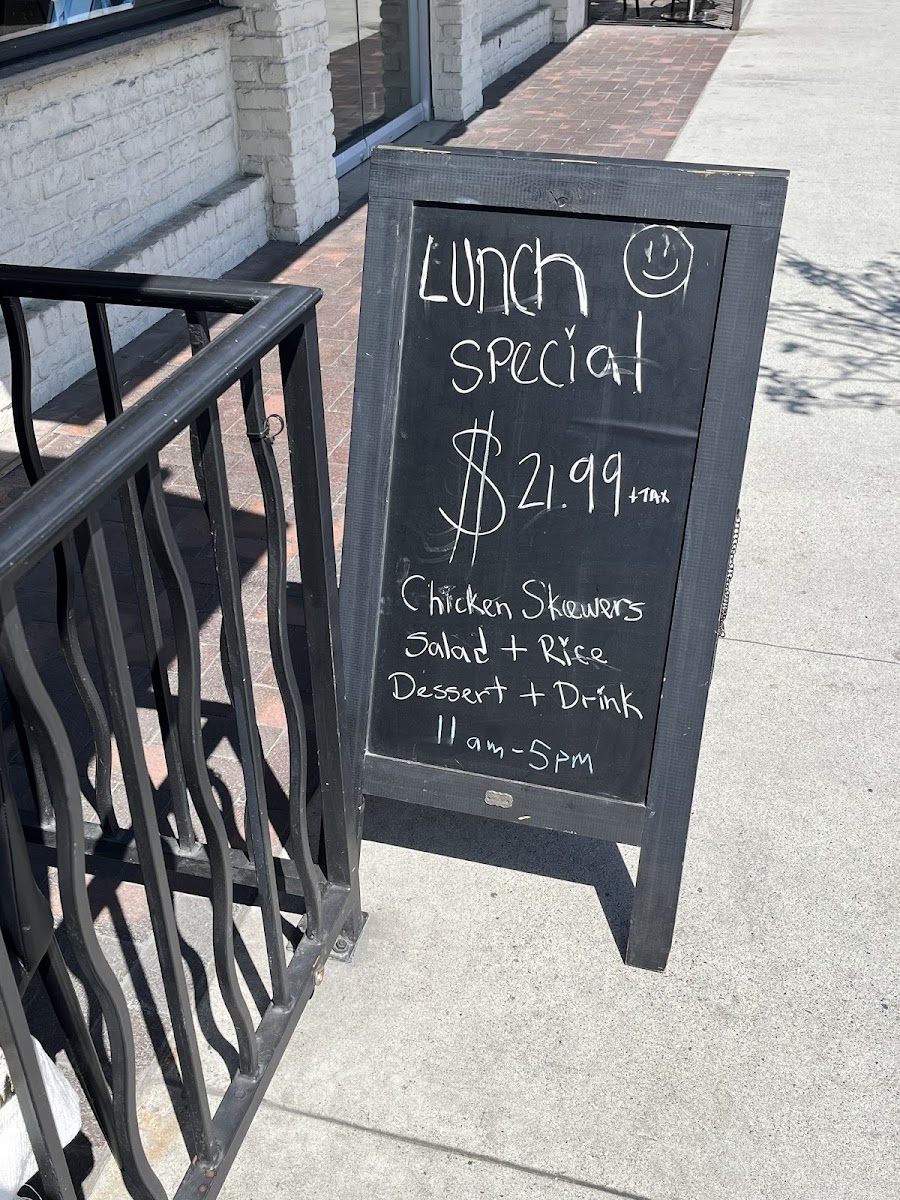 Lunch
Special
$21.99 +TAX
Chicken Skewers
Salad + Rice
Dessert + Drink
11am-5pm